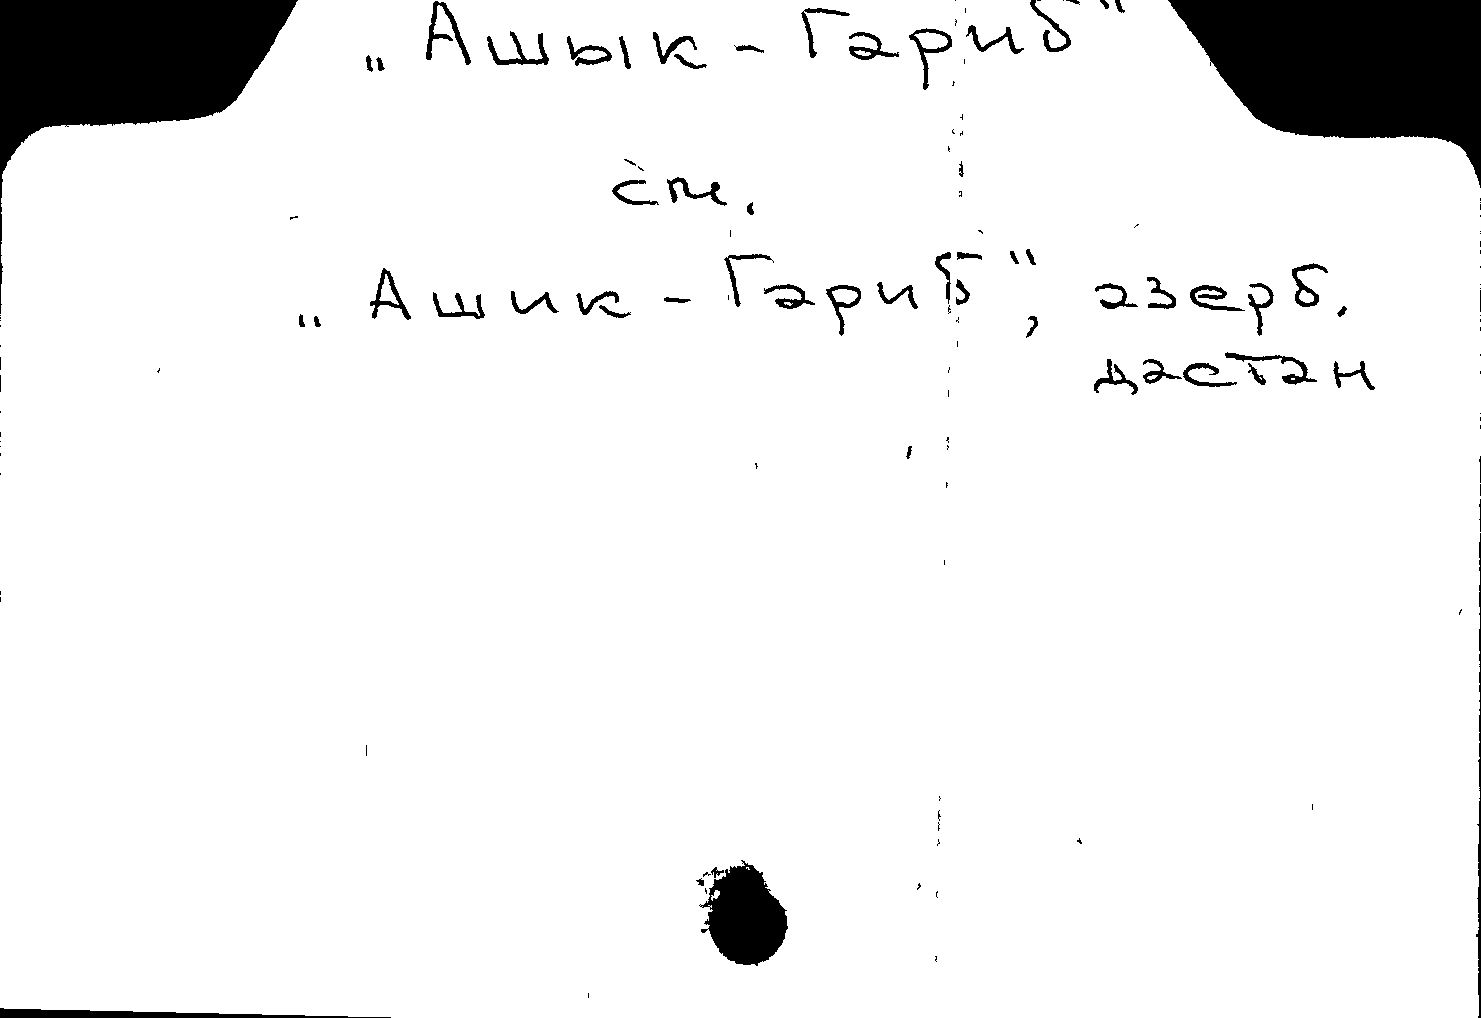 „Ашык-Гариб"
см.
„Ашик-Гариб", азерб.
дастан